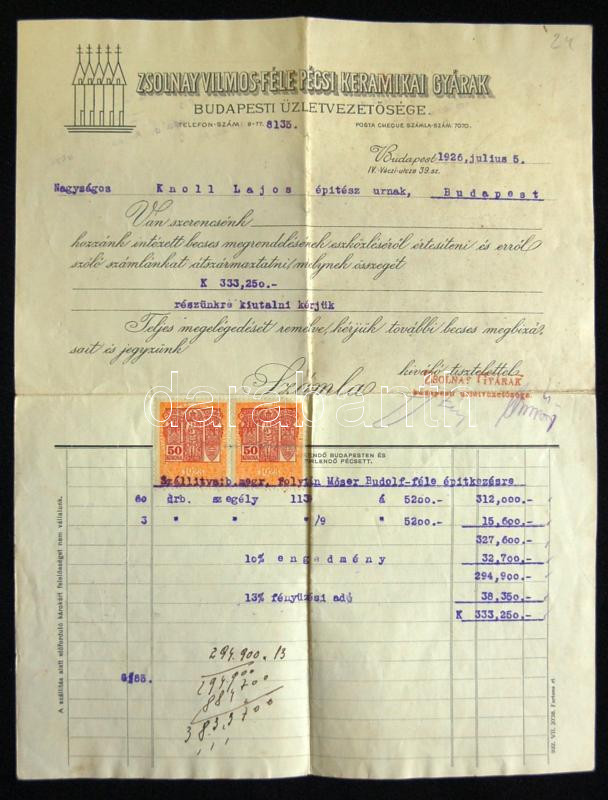 24
ZSOLNAY VILMOS-FÉLE PÉCSI KERAMIKAI GYÁRAK
BUDAPESTI ÜZLETVEZETŐSÉGE.
TELEFON-SZÁM: 8135. POSTA CHEQUE SZÁMLA-SZÁM: 7070.
Budapest 1926, julius 5.
IV. Váczi-utcza 39. sz.
Nagyságos Knoll Lajos épitész urnak, Budapest
Van szerencsénk
hozzánk intézett becses megrendelésének eszközléséről értesiteni és erről
szóló számlánkat átszármaztatni, melynek összegét
K 333,250.-
részünkre kiutalni kérjük
Teljes megelégedését remélve, kérjük további becses megbizá-
sait és jegyzünk
kiváló tisztelettel
Számla
ZSOLNAY GYÁRAK
budapesti üzletvezetősége
darabanth
50 50
KORONA KORONA
FIZETENDŐ BUDAPESTEN ÉS
PERLENDŐ PÉCSETT.
Szállitva: b. megr. folytán Móser Rudolf-féle épitkezésre
60 drb. szegély 113 á 5200.- 312,000.-
3 " " "/9 " 5200.- 15,600.-
327,600.-
10% engedmény 32,700.-
294,900.-
13% fényüzési adó 38,350.-
K 333,250.-
294.900.13
294900
884700
3833700
A szállitás alatt előforduló károkért felelősséget nem vállalunk.